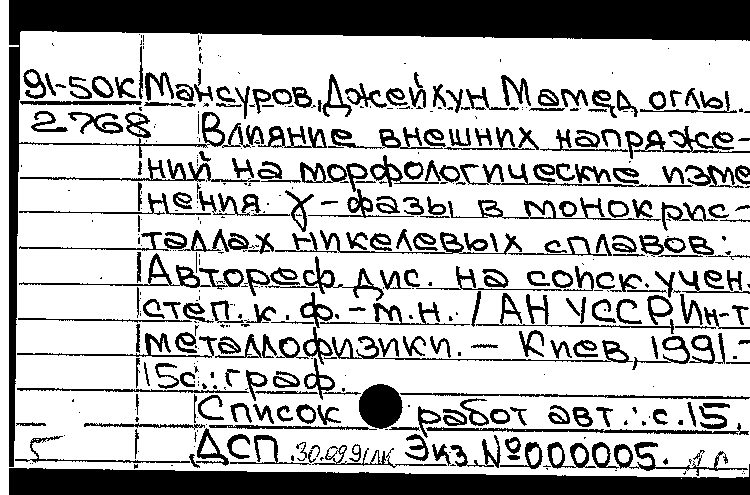 91-50К Мансуров, Джейхун Мамед оглы.
2768 Влияние внешних напряже-
ний на морфологические изме
нения γ-фазы в монокрис-
таллах никелевых сплавов:
Автореф. дис. на соиск. учен.
степ. к. ф.-м.н. / АН УССР, Ин-т
металлофизики. — Киев, 1991.-
15с.: граф.
Список работ авт.: с.15.
5 ДСП 30.09.91 Экз. №000005.